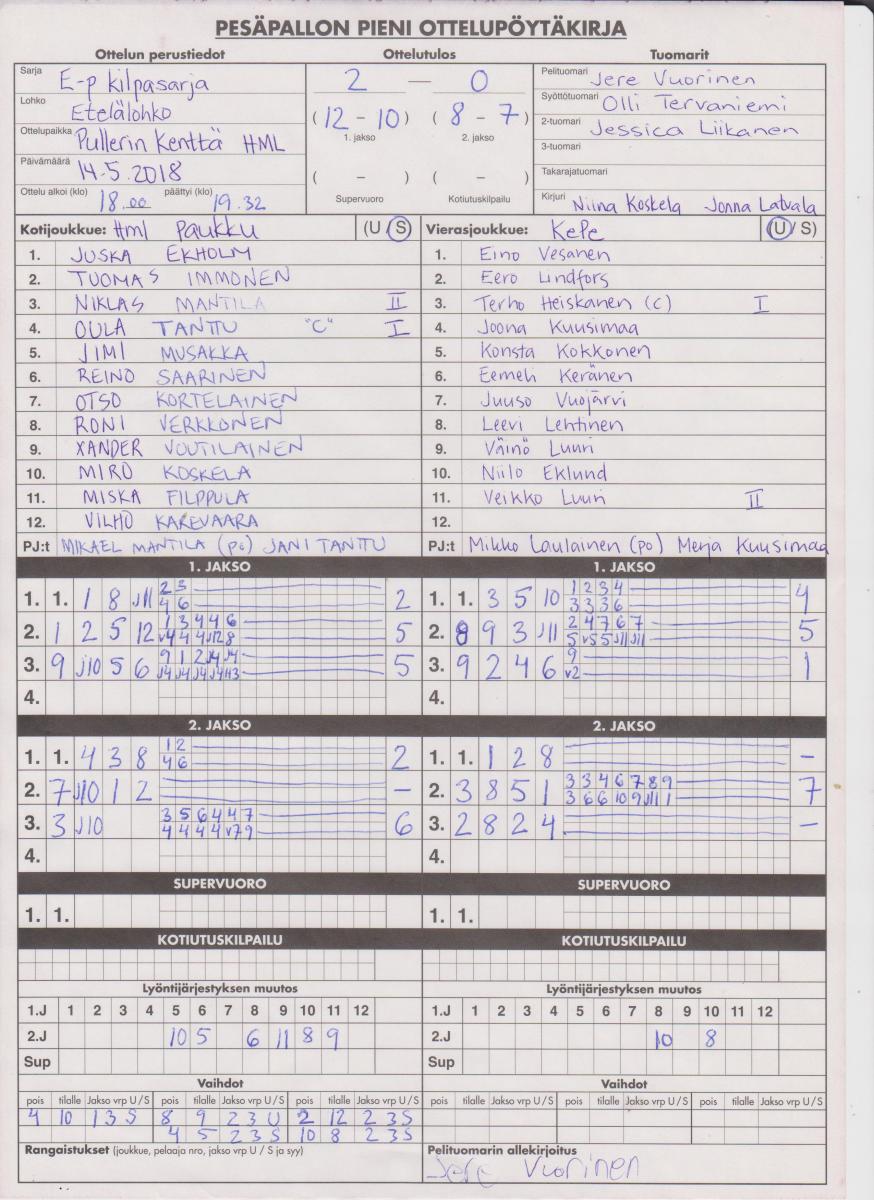 PESÄPALLON PIENI OTTELUPÖYTÄKIRJA
Ottelun perustiedot Ottelutulos Tuomarit
Sarja E-p kilpasarja
Lohko Etelälohko
Ottelupaikka Pullerin Kenttä HML
Päivämäärä 14.5.2018
Ottelu alkoi (klo) 18.00 päättyi (klo) 19.32
2 — 0
(12 - 10) (8 - 7)
1. jakso 2. jakso
( - ) ( - )
Supervuoro Kotiutuskilpailu
Pelituomari Jere Vuorinen
Syöttötuomari Olli Tervaniemi
2-tuomari Jessica Liikanen
3-tuomari
Takarajatuomari
Kirjuri Niina Koskela Jonna Latvala
Kotijoukkue: Hml Paukku (U / S)
1. JUSKA EKHOLM
2. TUOMAS IMMONEN
3. NIKLAS MANTILA II
4. OULA TANTTU "C" I
5. JIMI MUSAKKA
6. REINO SAARINEN
7. OTSO KORTELAINEN
8. RONI VERKKONEN
9. XANDER VOUTILAINEN
10. MIRO KOSKELA
11. MISKA FILPPULA
12. VILHO KAREVAARA
PJ:t MIKAEL MANTILA (po) JANI TANTTU
Vierasjoukkue: KePe (U / S)
1. Eino Vesanen
2. Eero Lindfors
3. Terho Heiskanen (c) I
4. Joona Kuusimaa
5. Konsta Kokkonen
6. Eemeli Keränen
7. Juuso Vuojärvi
8. Leevi Lehtinen
9. Väinö Luuri
10. Niilo Eklund
11. Veikko Luuri II
12.
PJ:t Mikko Laulainen (po) Merja Kuusimaa
1. JAKSO
1. 1. 1 8 J11 2 3 2
4 6
2. 1 2 5 12 1 3 4 4 6 5
v4 4 4 J12 8
3. 9 J10 5 6 9 1 2 J4 J4 5
J4 J4 J4 J4
4.
1. JAKSO
1. 1. 3 5 10 1 2 3 4 4
3 3 3 6
2. 8 9 3 J11 2 4 7 6 7 5
5 v5 5 J11 J11
3. 9 2 4 6 9 1
v2
4.
2. JAKSO
1. 1. 4 3 8 1 2 2
4 6
2. 7 J10 1 2 -
3. 3 J10 3 5 6 4 4 7 6
4 4 4 4 v7 9
4.
2. JAKSO
1. 1. 1 2 8 -
2. 3 8 5 1 3 3 4 6 7 8 9 7
3 6 6 10 9 J11 1
3. 2 8 2 4 -
4.
SUPERVUORO SUPERVUORO
1. 1. 1. 1.
KOTIUTUSKILPAILU KOTIUTUSKILPAILU
Lyöntijärjestyksen muutos Lyöntijärjestyksen muutos
1.J 1 2 3 4 5 6 7 8 9 10 11 12
2.J 10 5 6 11 8 9
Sup
1.J 1 2 3 4 5 6 7 8 9 10 11 12
2.J 10 8
Sup
Vaihdot Vaihdot
pois tilalle Jakso vrp U / S pois tilalle Jakso vrp U / S pois tilalle Jakso vrp U / S
4 10 1 3 S 8 9 2 3 U 2 12 2 3 S
4 5 2 3 S 10 8 2 3 S
pois tilalle Jakso vrp U / S pois tilalle Jakso vrp U / S pois tilalle Jakso vrp U / S
Rangaistukset (joukkue, pelaaja nro, jakso vrp U / S ja syy)
Pelituomarin allekirjoitus
Jere Vuorinen